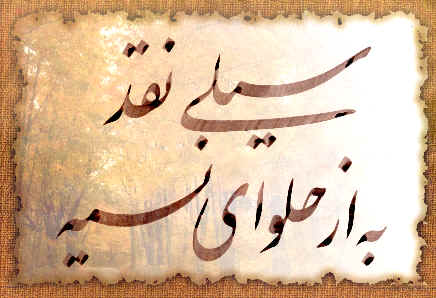 سیلی نقد
به از حلوای نسیه